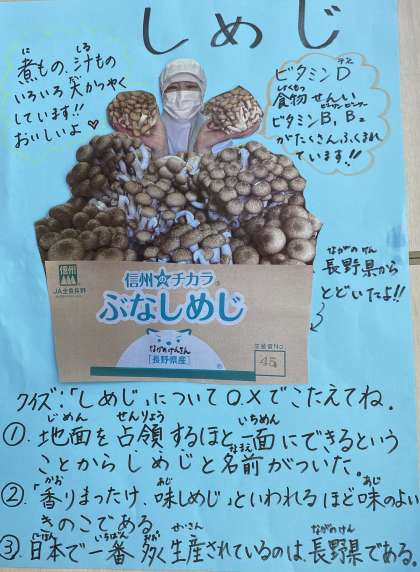 しめじ
煮もの、汁もの
いろいろ大かつやく
しています!!
おいしいよ
ビタミンDデス
食物せんい
ビタミンB₁、B₂
がたくさんふくまれ
ています!!
長野県から
とどいたよ!!
信州
JA全農長野
信州のチカラ
ぶなしめじ
ながのけんさん
「長野県産」
生産者No.
45
クイズ:「しめじ」について○、×でこたえてね.
① 地面を占領するほど一面にできるという
ことからしめじと名前がついた。
②「香りまったけ、味しめじ」といわれるほど味のよい
きのこである。
③ 日本で一番多く生産されているのは、長野県である。